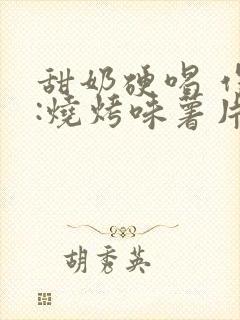 甜奶硬唱
:燒烤味薯片
胡秀英